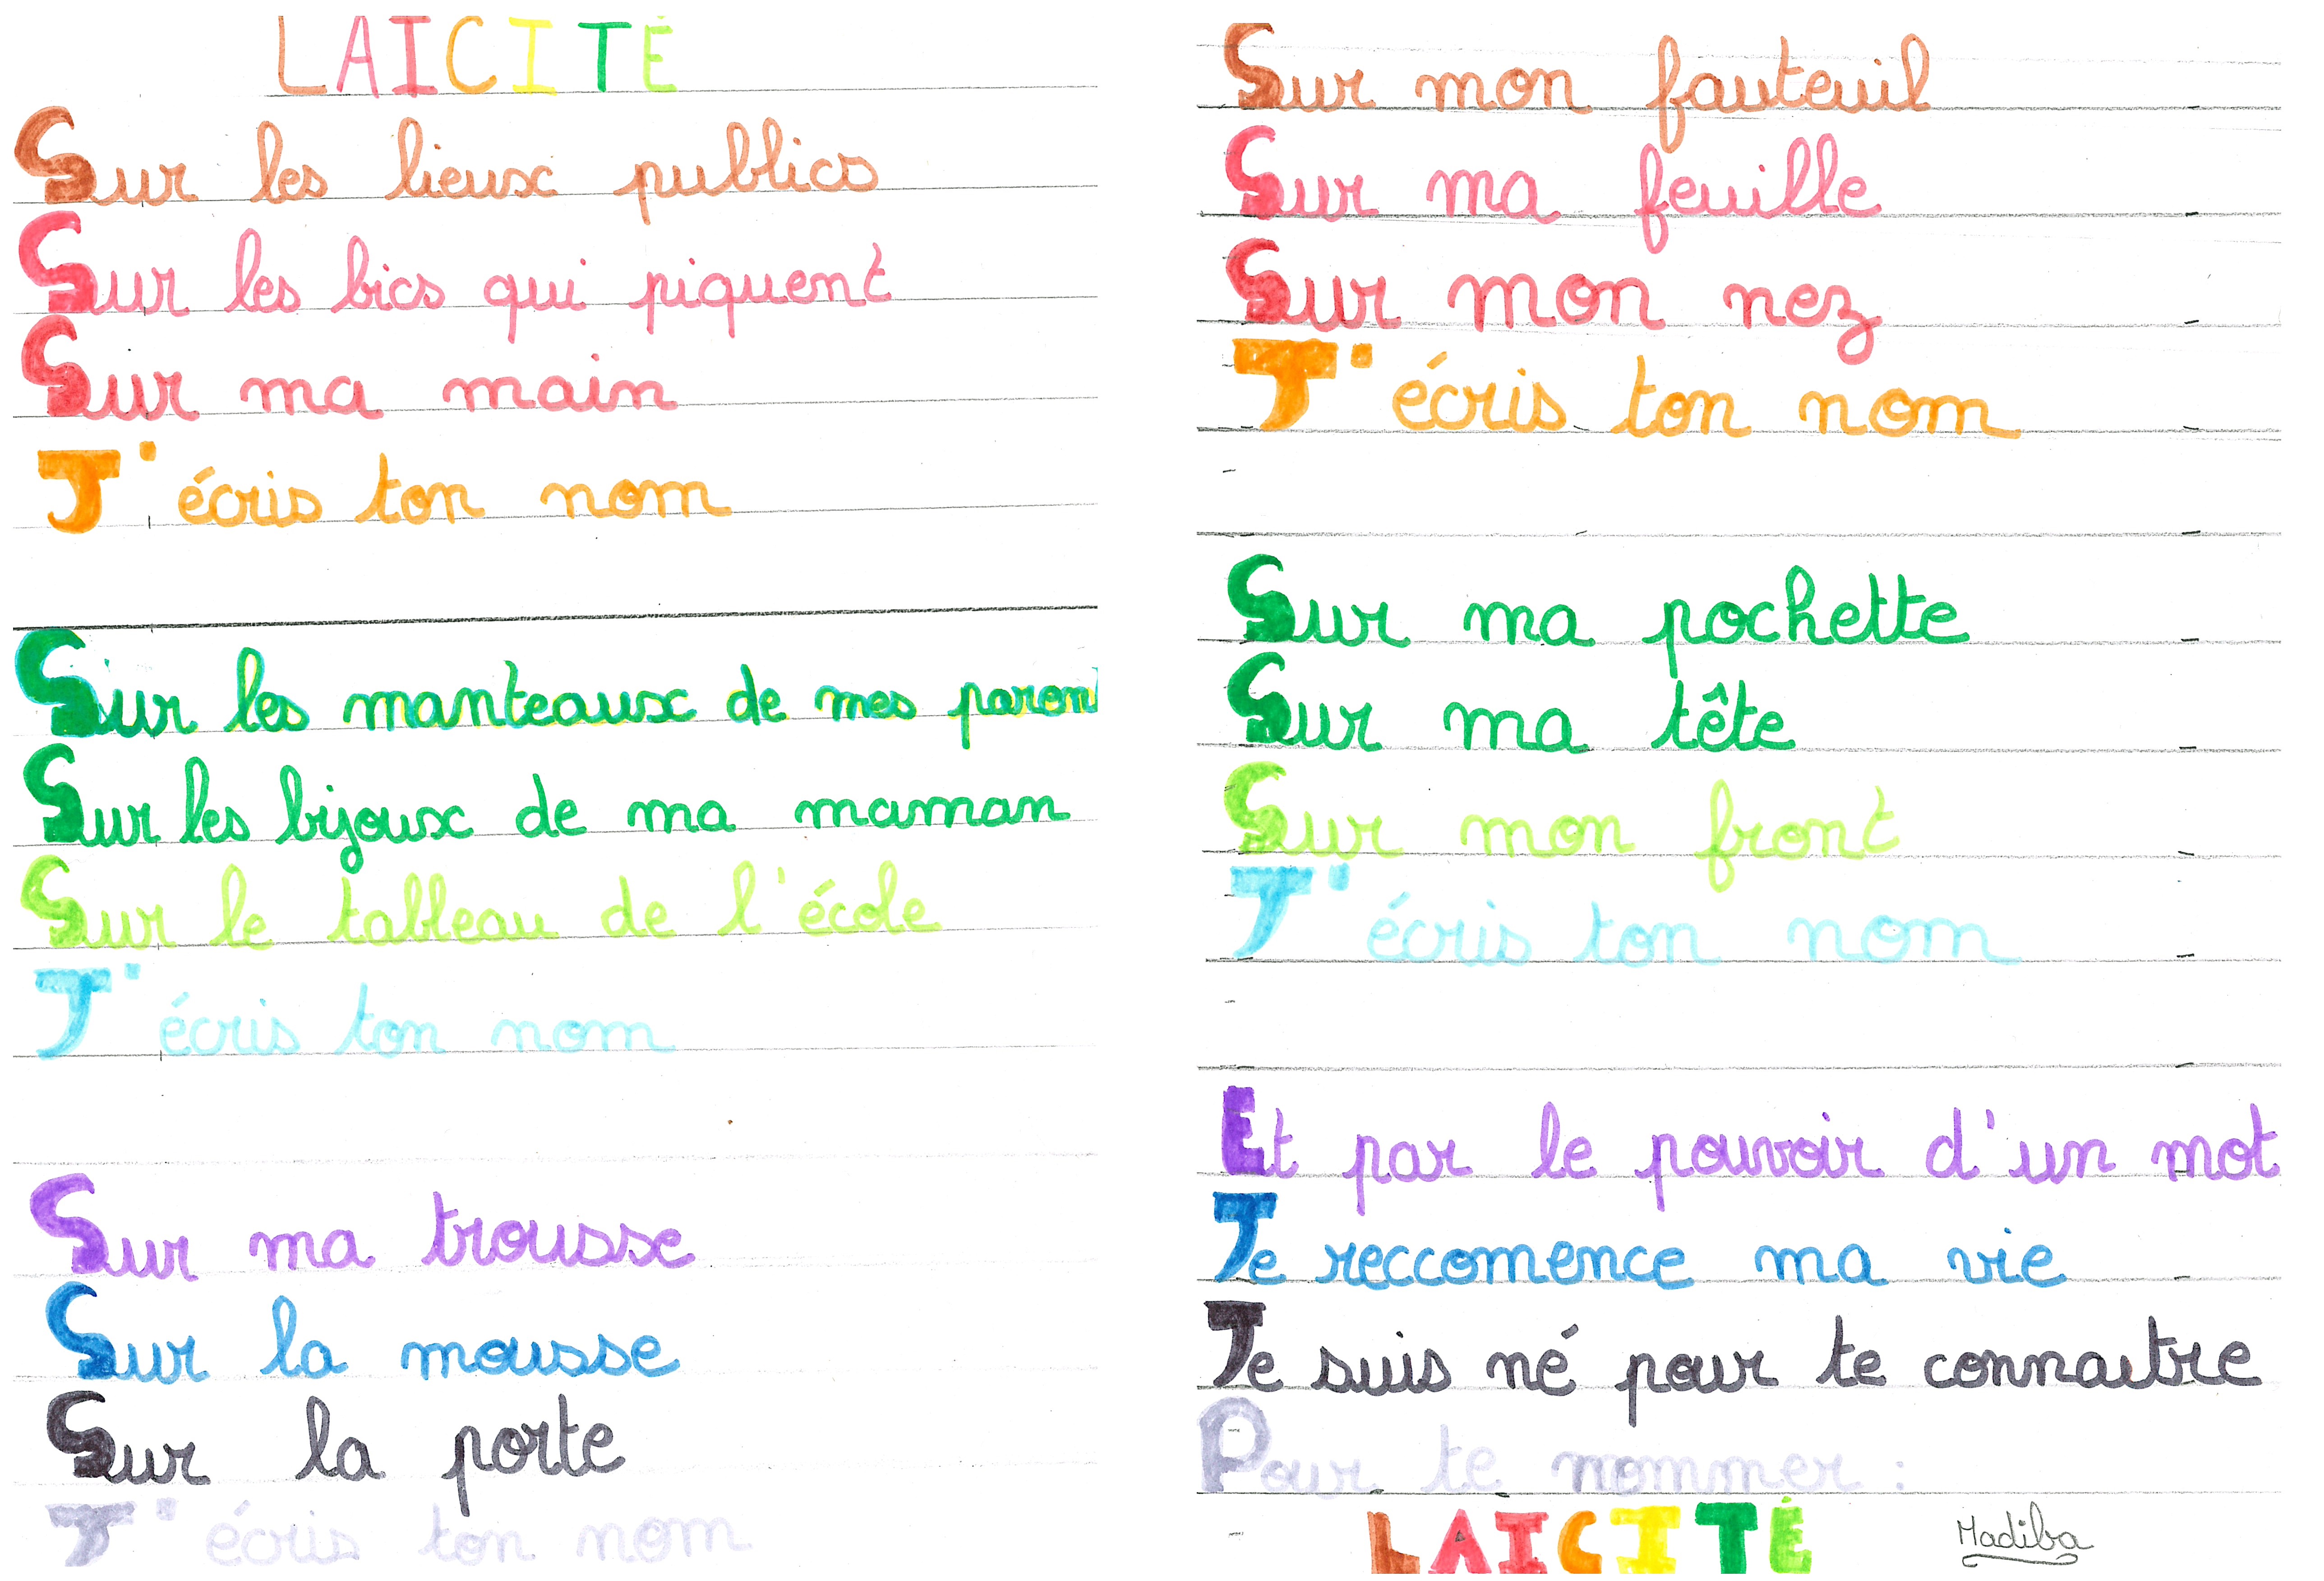 LAICITÉ
Sur les lieux publics
Sur les bics qui piquent
Sur ma main
J'écris ton nom
Sur les manteaux de mes paren
Sur les bijoux de ma maman
Sur le tableau de l'école
J'écris ton nom
Sur ma trousse
Sur la mousse
Sur la porte
J'écris ton nom
Sur mon fauteuil
Sur ma feuille
Sur mon nez
J'écris ton nom
Sur ma pochette
Sur ma tête
Sur mon front
J'écris ton nom
Et par le pouvoir d'un mot
Je reccomence ma vie
Je suis né pour te connaitre
Pour te nommer :
LAICITÉ
Madiba